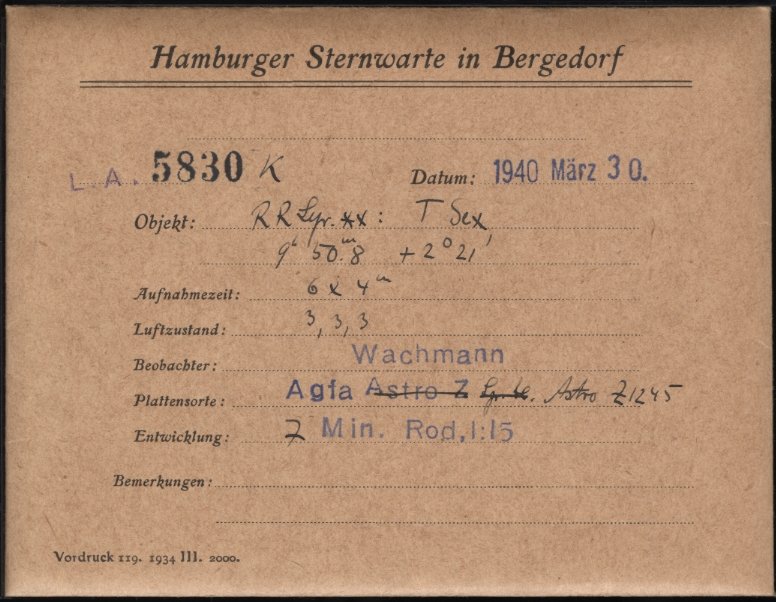 Hamburger Sternwarte in Bergedorf
L.A. 5830 K Datum: 1940 März 30.
Objekt: RR Lyr. **: T Sex
9h 50m.8 +2°21'
Aufnahmezeit: 6 x 4m
Luftzustand: 3,3,3
Beobachter: Wachmann
Plattensorte: Agfa Astro Z Astro Z1245
Entwicklung: 7 Min. Rod,1:15
Bemerkungen:
Vordruck 119. 1934 III. 2000.